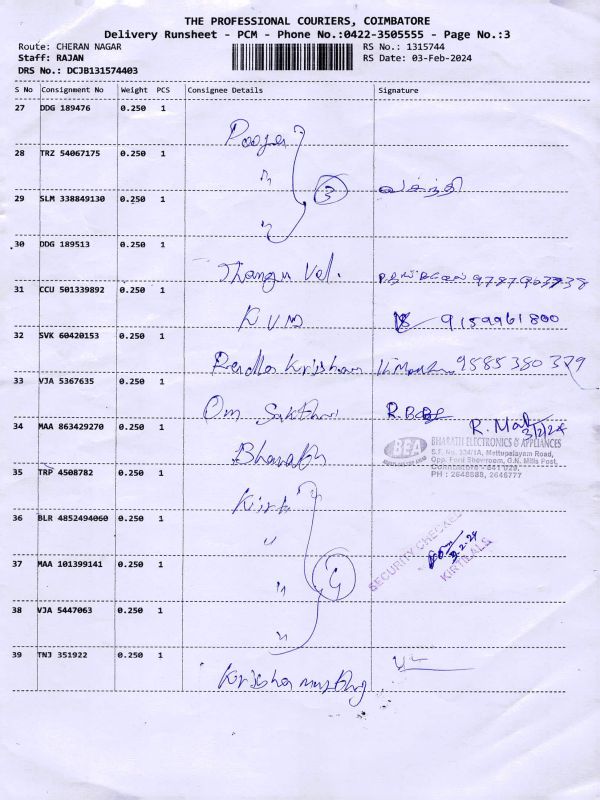 THE PROFESSIONAL COURIERS, COIMBATORE
Delivery Runsheet - PCM - Phone No.:0422-3505555 - Page No.:3
Route: CHERAN NAGAR RS No.: 1315744
Staff: RAJAN RS Date: 03-Feb-2024
DRS No.: DCJB131574403
S No Consignment No Weight PCS Consignee Details Signature
27 DDG 189476 0.250 1
Pooja
28 TRZ 54067175 0.250 1
"
3
29 SLM 338849130 0.250 1
வசந்தி
"
30 DDG 189513 0.250 1
Thangu Vel. 9787903738
31 CCU 501339892 0.250 1
KVM 9159961800
32 SVK 60420153 0.250 1
Radha Krishnan 9585380379
33 VJA 5367635 0.250 1
Om Sakthi
34 MAA 863429270 0.250 1
R. 3/2/24
BEA BHARATH ELECTRONICS & APPLIANCES
S.F. No. 334/1A, Mettupalayam Road,
Opp. Ford Showroom, G.N. Mills Post,
Coimbatore - 641 029.
PH : 2648688, 2646777
Bharath
35 TRP 4508782 0.250 1
36 BLR 4852494060 0.250 1
"
SECURITY CHECKED
3.2.24
KIRTILALS
37 MAA 101399141 0.250 1
4
"
38 VJA 5447063 0.250 1
"
39 TNJ 351922 0.250 1